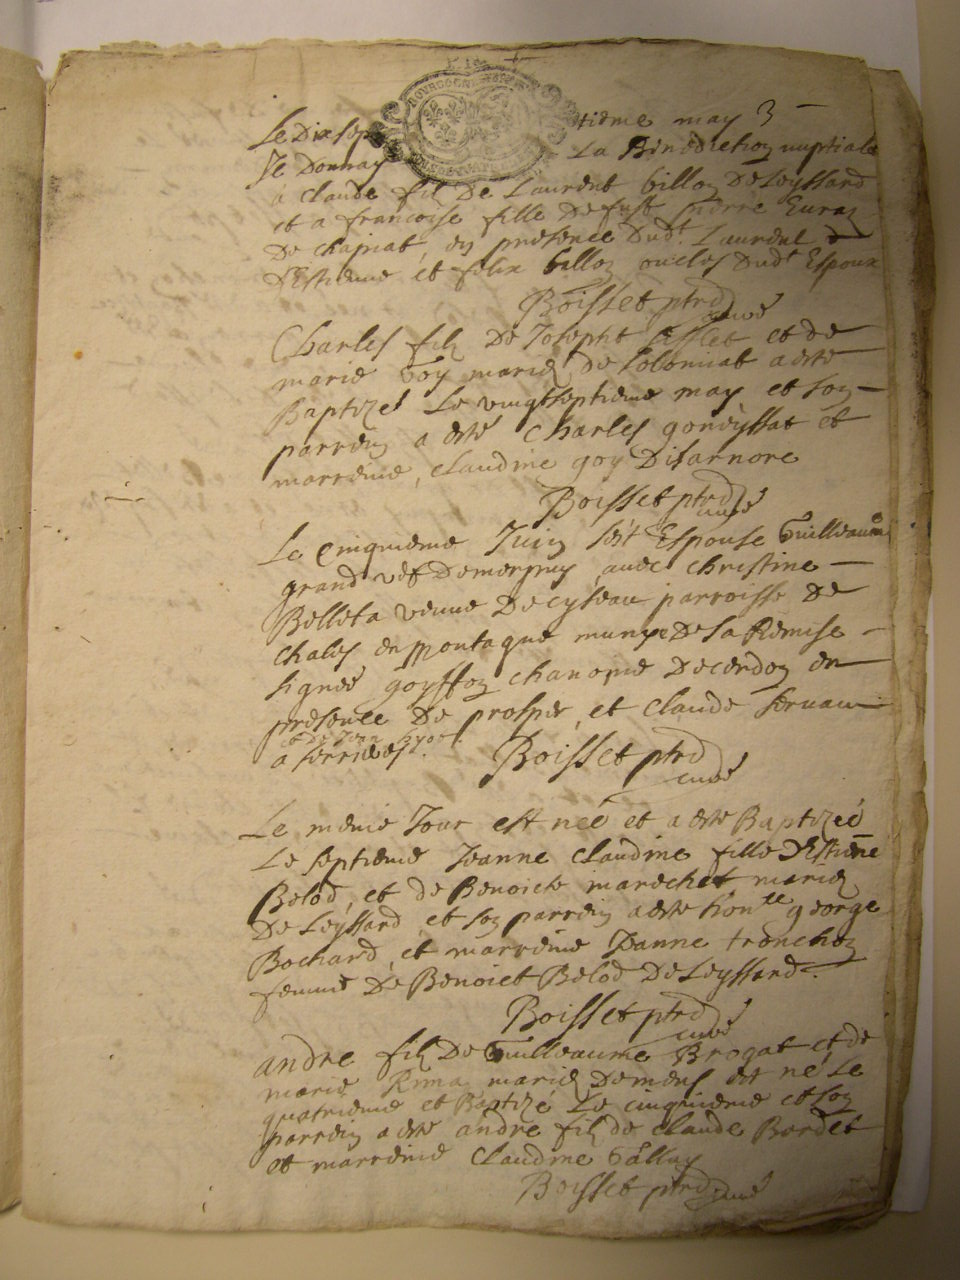 Le Dixsep tieme may 3
Je Donnay La Benediction nuptiale
a claude filz De Laurent billoz De Leyssard
et a francoise fille De fust pierre Euraz
De chapiat, en presence Dudt. Laurent et
D'Estienne et felix billoz oncles Dudt Espoux
Boisset ptre
curé
Charles filz De Joseph et de
marie Goy mariez De Solomiat a este
Baptizé Le vingtseptieme may et son
parrein a esté Charles goneyssat et
marreine, claudine goy Disarnore
Boisset ptre
curé
Le Cinquieme Juin s'est Espouse Guilleaume
grand vef Demorgnis, avec christine
Belleta veuve De cyseau parroisse De
chales en montagne munye De La Remise
signeé goyffoz chanoine Decerdoz en
presence De prosper, et claude servan
et De Jean
a serrieres.
Boisset ptre
curé
Le meme Jour est neé et a este Baptizeé
Le septieme Jeanne Claudine fille D'Estiene
Belod, et de Benoiste marechet mariez
De Leyssard, et son parrein a este honte george
Bochard, et marreine Jeanne tronchoz
femme De Benoict Belod De Leyssard.
Boisset ptre
curé
andre filz De Guilleaume Brogat et de
marie mariez Demens est né Le
quatrieme et Baptizé Le cinquieme et son
parrein a este andre filz de claude Bordet
et marreine Claudine
Boisset ptre curé